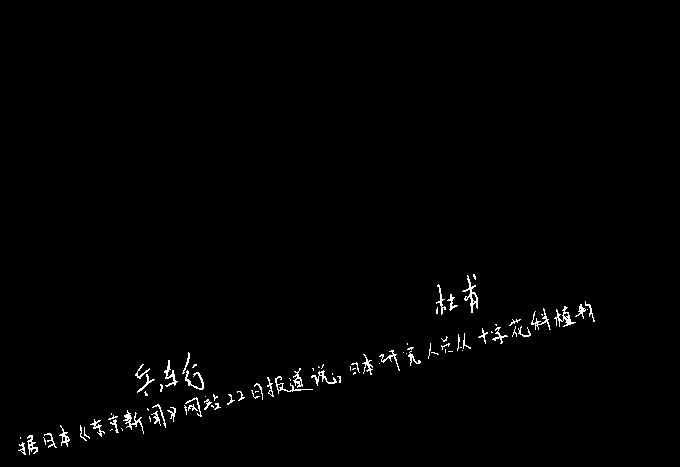 兵车行
杜甫
据日本《东京新闻》网站22日报道说,日本研究人员从十字花科植物